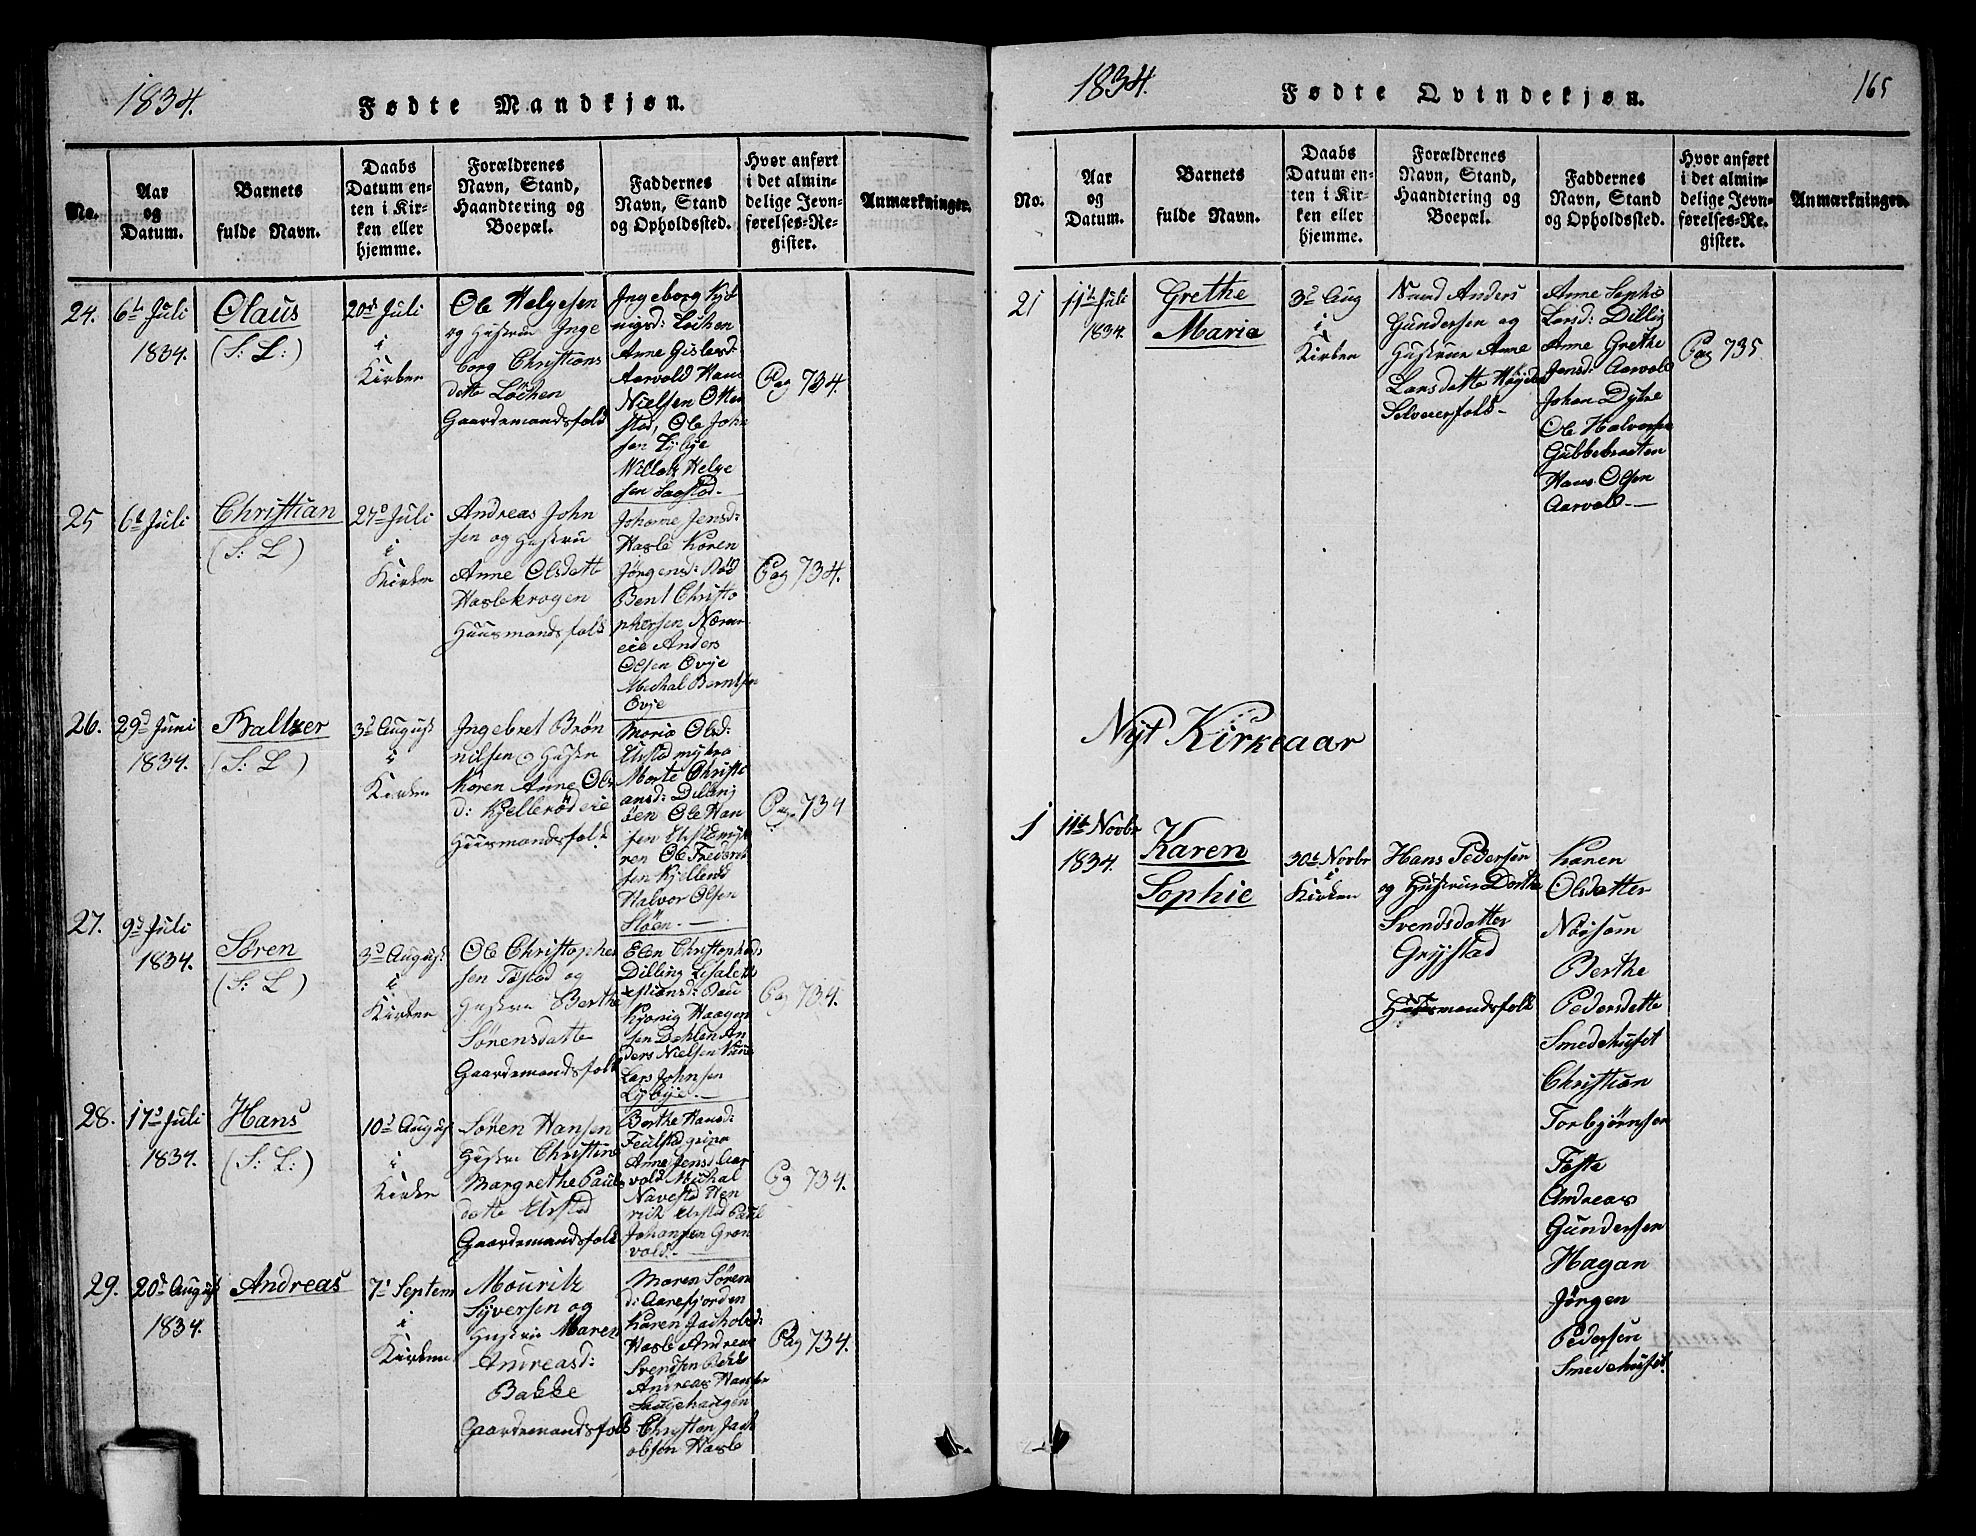 1834.
Fødte Mandkjøn.
No.
Aar
og
Datum.
Barnets
fulde Navn.
Daabs
Datum en-
ten i Kir-
ken eller
hjemme.
Forældrenes
Navn, Stand,
Haandtering og
Boepæl.
Faddernes
Navn, Stand
og Opholdssted.
Hvor anført
i det almin-
delige Jevn-
førelses-Re-
gister.
Anmærkninger.
24.
6te Juli
1834.
Olaus
(S: L:)
20de Juli
i
Kirken
Ole Helgesen
og Hustrue Inge
borg Christians
datte Løchen
Gaardemandsfolk
Ingeborg
Løchen
Anne Gislesd:
Aarvold Hans
Nielsen Otter
stad, Ole John
sen Lybye
Willak Helge
sen Saastad.
Pag 734.
25
6t Juli
Christian
(S: L)
27d Juli
i
Kirken
Andreas John
sen og Hustru
Anne Olsdatte
Haslekrogen
Huusmandsfolk
Johanne Jensd:
Hasle Karen
Jørgensd: Rød
Bent Christo
phersen Nærur
eie Anders
Olsen Evje
Michal Berntsen
Evje
Pag 734.
26.
29d Juni
1834.
Baltzer
(S: L)
3d August
i
Kirken
Ingebret Brøn
nilsen og Hustru
Maren Anne Ols
d: Kjellerød eie
Huusmandsfolk
Maria Olsd:
Elstad
Marte Christi
ansd: Dilling
øen Ole Han
sen
ren Ole Frederik
sen Kjellerød
Halvor Olsen
Sløen.
Pag 734
27.
9d Juli
1834.
Søren
(S: L)
3d August
i
Kirken
Ole Christopher
sen Tøstad og
Hustru Berthe
Sørensdatte
Gaardemandsfolk
Elen Christophersd
Dilling
Kjønig Haagen
sen Dahlen An
ders Nielsen
Lars Johnsen
Lybye.
Pag 734.
28.
17d Juli
1834.
Hans
(S: L:)
10d August
i
Kirken
Søren Hansen
Hustru Christine
Margrethe Pauls
datte Elstad
Gaardemandsfolk
Berthe Hansd:
Anne Jensd Aar
vold Michal
Navestad Hen
rik Elstad Paul
Johansen Grøn
vold.
Pag 734.
29.
20d August
1834.
Andreas
7d Septem
i
Kirken
Mouritz
Syversen og
Hustrue Maren
Andreasd:
Bakke
Gaardemandsfolk
Maren Søren
d: Aarefjorden
Karen Jachobsd:
Hasle Andreas
Svendsen Bakke
Andreas Hansen
Christen Jach
obsen Hasle
Pag 734.
1834.
Fødte Qvindekjøn.
165
No.
Aar
og
Datum.
Barnets
fulde Navn.
Daabs
Datum en-
ten i Kir-
ken eller
hjemme.
Forældrenes
Navn, Stand,
Haandtering og
Boepæl.
Faddernes
Navn, Stand
og Opholdssted.
Hvor anført
i det almin-
delige Jevn-
førelses-Re-
gister.
Anmærkninger.
21
11te Juli
1834.
Grethe
Marie
3d Aug
i
Kirken
Anders
Gundersen og
Hustrue Anne
Larsdatte Høyden
Selveierfolk
Anne Sophie
Larsd: Dilling
Anne Grethe
Jensd: Aarvold
Johan Dykre
Ole Halvorsen
Gubbebraaten
Hans Olsen
Aarvold.
Pag 735
Nyt Kirkeaar
1
11te Novbr
1834.
Karen
Sophie
30t Novbr
i
Kirken
Hans Pedersen
og Hustrue Dorthe
Svendsdatter
Gryjstad
Huusmandsfolk
Karen
Olsdatter
Nøisom
Berthe
Pedersdatte
Smedehuset
Christian
Torbjørnsen
Tøste
Andreas
Gundersen
Hagan
Jørgen
Pedersen
Smedehuset.